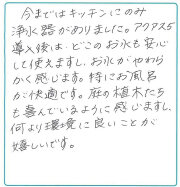 今まではキッチンにのみ
浄水器がありました。アクアス5
導入後は、どこのお水も安心
して使えますし、お水がやわら
かく感じます。特にお風呂
が快適です。庭の植木たち
も喜んでいるように感じますし、
何より環境に良いことが
嬉しいです。